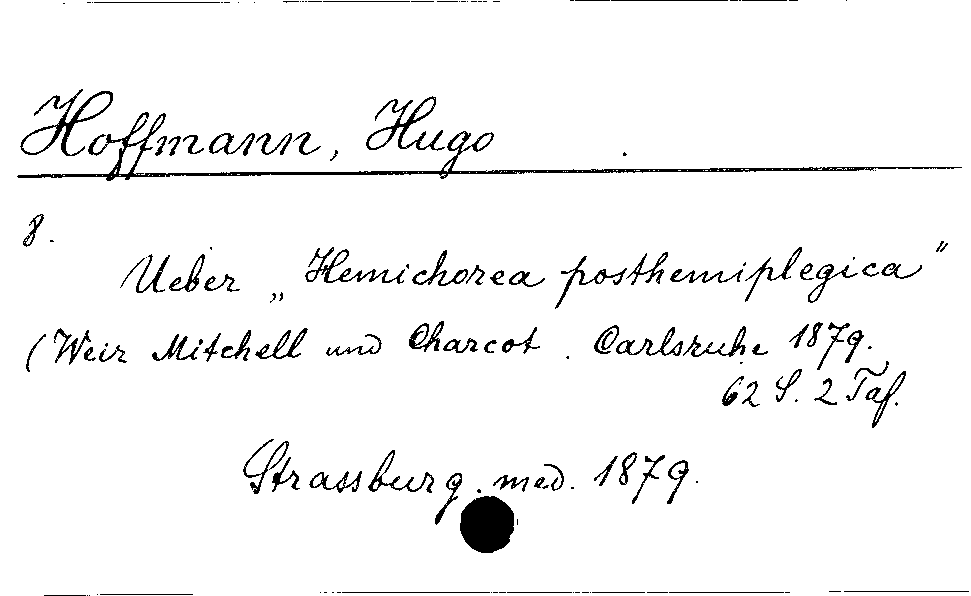 Hoffmann, Hugo
8.
Ueber „Hemichorea posthemiplegica"
(Weir Mitchell und Charcot. Carlsruhe 1879.
62 S. 2 Taf.
Strassburg. med. 1879.